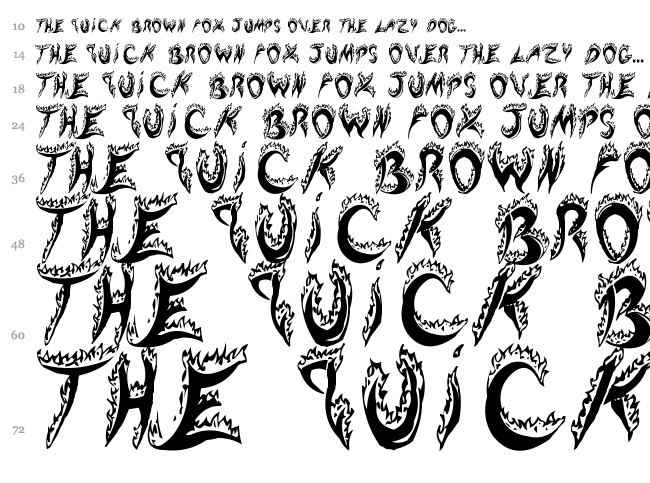 10 THE QUiCK BROWN FOX JUMPS OVER THE LAZY DOG...
14 THE QUiCK BROWN FOX JUMPS OVER THE LAZY DOG...
18 THE QUiCK BROWN FOX JUMPS OVER THE
24 THE QUiCK BROWN FOX JUMPS O
36 THE QUiCK BROWN FO
48 THE QUiCK BRO
60 THE QUiCK B
72 THE QUiCK